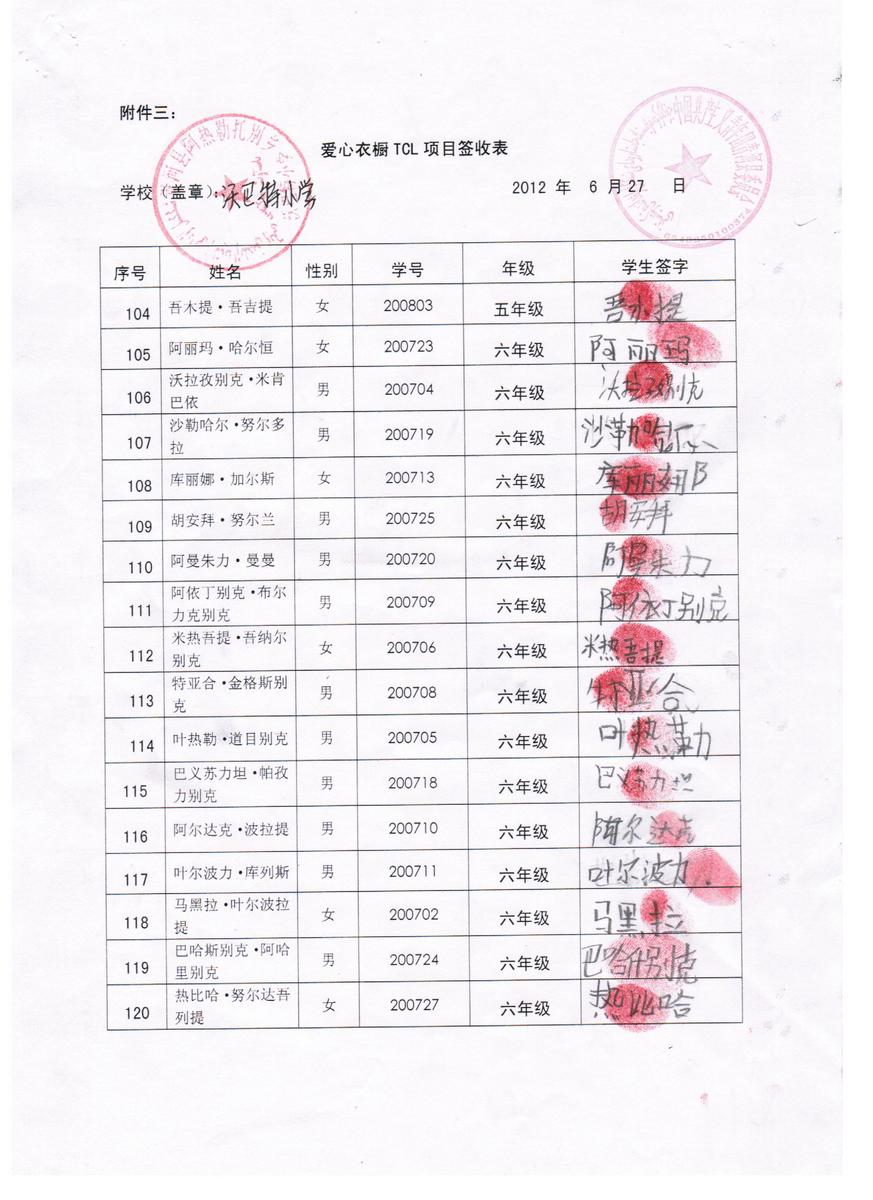 附件三：
爱心衣橱 TCL 项目签收表
学校（盖章）：沃巴特小学 2012 年 6 月 27 日
序号 姓名 性别 学号 年级 学生签字
104 吾木提·吾吉提 女 200803 五年级 吾木提
105 阿丽玛·哈尔恒 女 200723 六年级 阿丽玛
106 沃拉孜别克·米肯
巴依 男 200704 六年级 沃拉孜别克
107 沙勒哈尔·努尔多
拉 男 200719 六年级
108 库丽娜·加尔斯 女 200713 六年级 库丽娜
109 胡安拜·努尔兰 男 200725 六年级 胡安拜
110 阿曼朱力·曼曼 男 200720 六年级 阿曼朱力
111 阿依丁别克·布尔
力克别克 男 200709 六年级 阿依丁别克
112 米热吾提·吾纳尔
别克 女 200706 六年级 米热吾提
113 特亚合·金格斯别
克 男 200708 六年级 特亚合
114 叶热勒·道目别克 男 200705 六年级 叶热勒
115 巴义苏力坦·帕孜
力别克 男 200718 六年级 巴义苏力坦
116 阿尔达克·波拉提 男 200710 六年级 阿尔达克
117 叶尔波力·库列斯 男 200711 六年级 叶尔波力.
118 马黑拉·叶尔波拉
提 女 200702 六年级 马黑拉
119 巴哈斯别克·阿哈
里别克 男 200724 六年级 巴哈什别克
120 热比哈·努尔达吾
列提 女 200727 六年级 热比哈